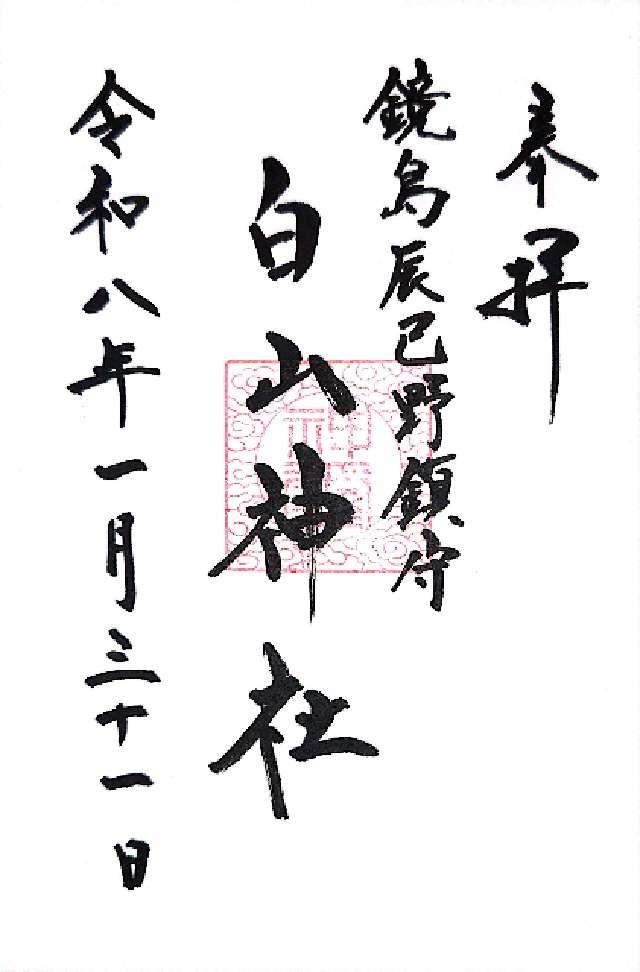 奉拝
鏡島辰巳野鎮守
白山神社
令和八年一月三十一日